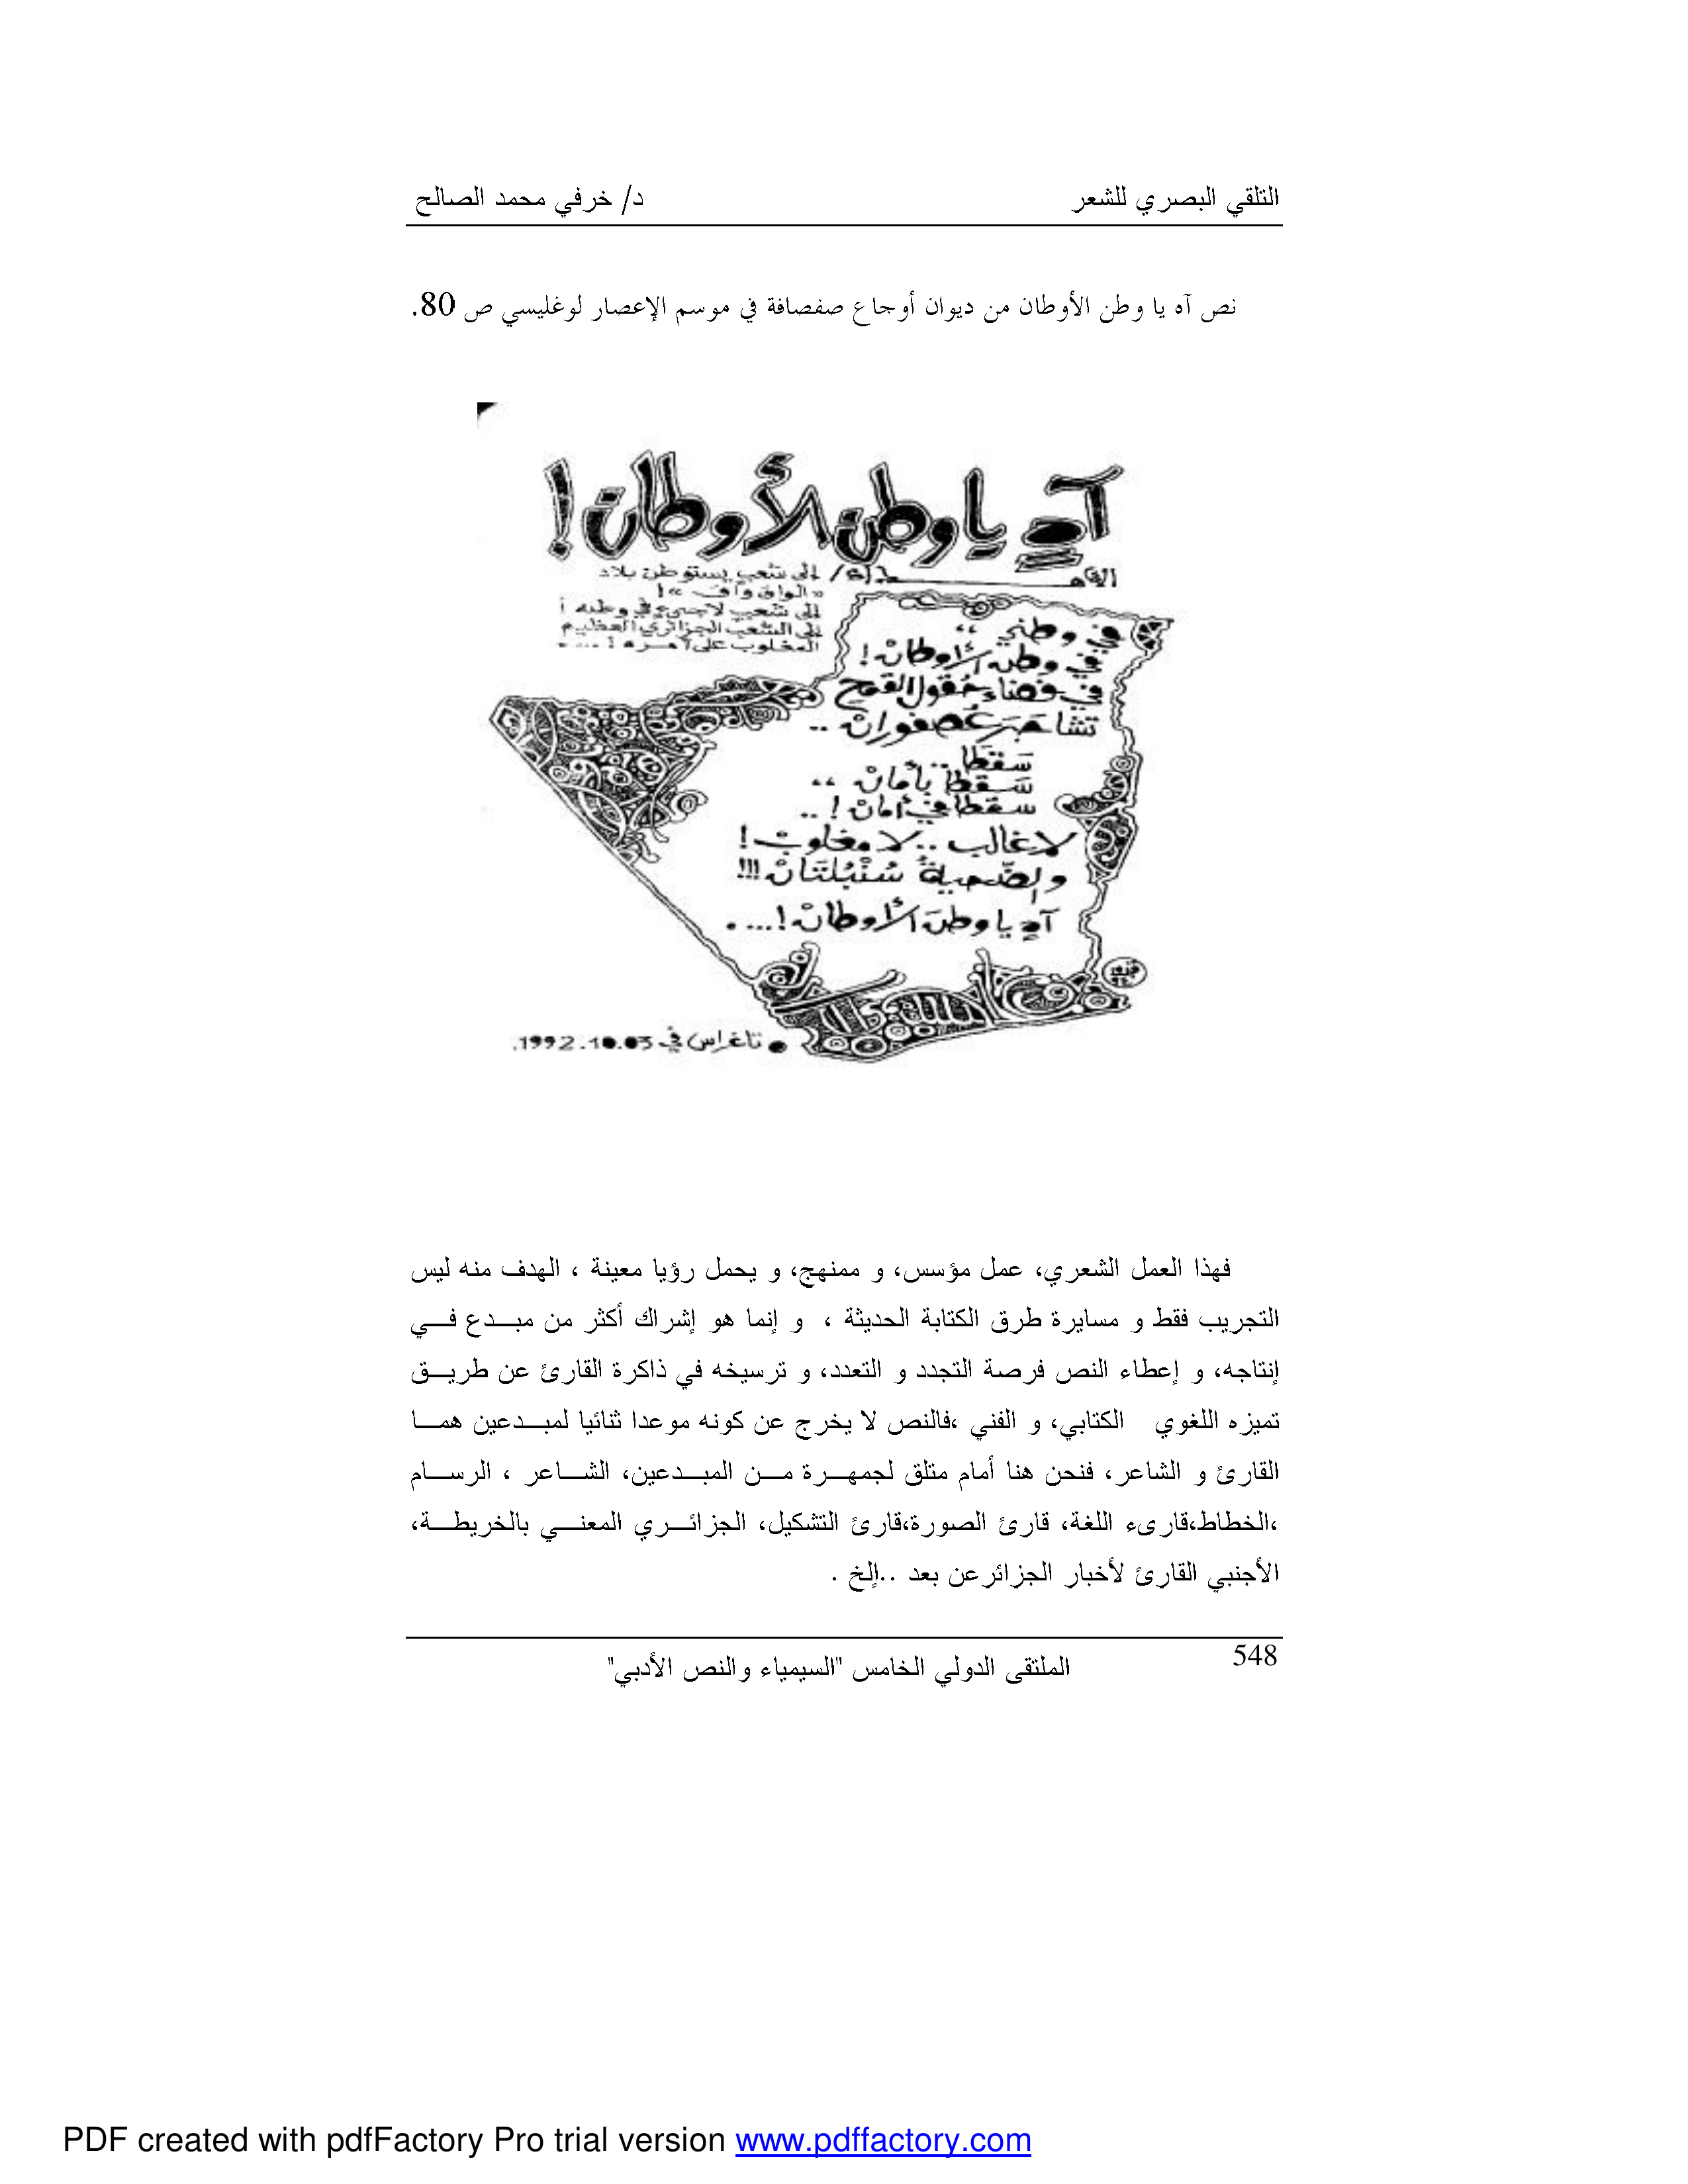 التلقي البصري للشعر د/ خرفي محمد الصالح
نص آه يا وطن الأوطان من ديوان أوجاع صفصافة في موسم الإعصار لوغليسي ص 80.
آه يا وطن الأوطان!
الإهـــداء/ إلى شعب يستوطن بلاد
«الواق واق»!
إلى شعب لاجئ في وطنه!
إلى الشعب الجزائري العظيم
المغلوب على أمره!....
في وطني،،
في وطن الأوطانْ!
في فضاء حُقول القمح
تشاجَرَ عُصفورانْ..
سَقطَا..
سَقطَا بأمانْ،،
سقطا في أمانْ!..
لا غالب.. لا مغلوبْ!
والضّحيةُ سُنْبُلتَانْ!!!
آه يا وطنَ الأوطانْ!....
• تاغراس في 1992.10.03.
فهذا العمل الشعري، عمل مؤسس، و ممنهج، و يحمل رؤيا معينة ، الهدف منه ليس
التجريب فقط و مسايرة طرق الكتابة الحديثة ، و إنما هو إشراك أكثر من مبـــدع فـــي
إنتاجه، و إعطاء النص فرصة التجدد و التعدد، و ترسيخه في ذاكرة القارئ عن طريـــق
تميزه اللغوي الكتابي، و الفني ،فالنص لا يخرج عن كونه موعدا ثنائيا لمبـــدعين همـــا
القارئ و الشاعر، فنحن هنا أمام متلق لجمهـــرة مـــن المبـــدعين، الشـــاعر ، الرســـام
،الخطاط،قارىء اللغة، قارئ الصورة،قارئ التشكيل، الجزائـــري المعنـــي بالخريطـــة،
الأجنبي القارئ لأخبار الجزائرعن بعد ..إلخ .
548
الملتقى الدولي الخامس "السيمياء والنص الأدبي"
PDF created with pdfFactory Pro trial version www.pdffactory.com